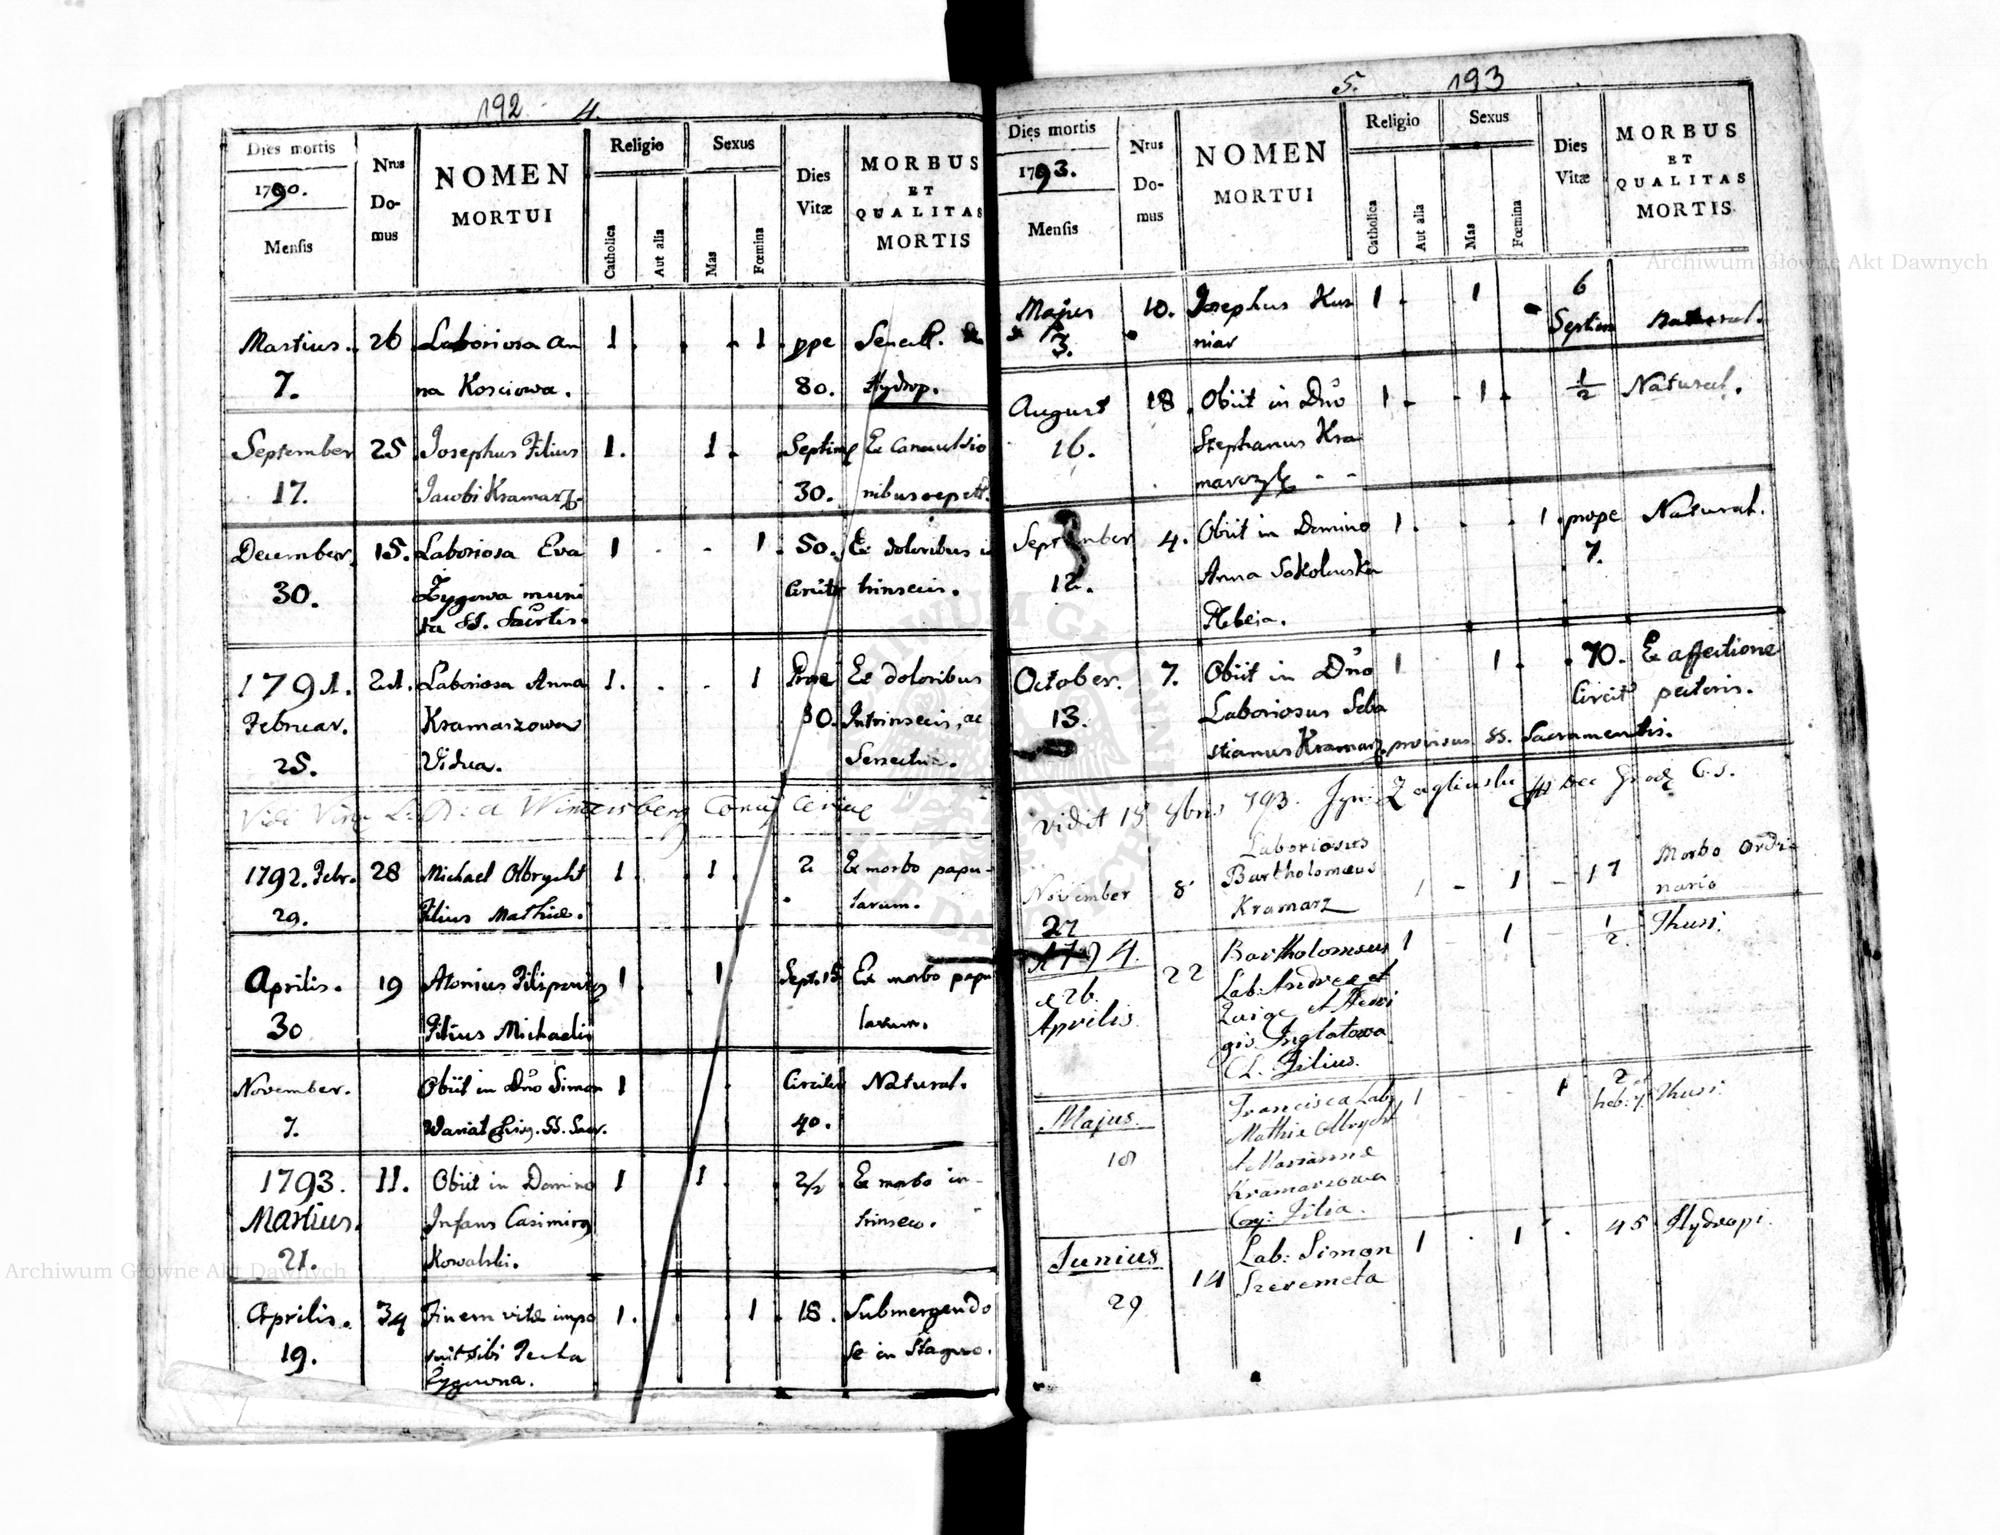 192 4.
Dies mortis
1790.
Mensis
Nrus
Do-
mus
NOMEN
MORTUI
Religio
Catholica
Aut alia
Sexus
Mas
Fœmina
Dies
Vitæ
MORBUS
ET
QUALITAS
MORTIS
Martius. 26 Laboriosa An 1 1 ppe Senect.
7. na Kosciowa. 80. Hydrop.
September 25 Josephus Filius 1. 1. Septim
17. Jacobi Kramarz 30. nibus
December. 15. Laboriosa Eva 1 1. 50. Ex doloribus
30. Zygowa muni trinsecis.
ta SS.
1791. 21. Laboriosa Anna 1. 1 Ex doloribus
Februar. Kramarzowa 80. Intrinsecis, ac
25. Vidua.
Vidi a Wintersberg
1792. Febr. 28 Michael Olbrycht 1 1. 2 Ex morbo papu-
29. Filius Mathiæ. larum.
Aprilis. 19 1 1 Sept. 15 Ex morbo papu
30 Filius Michaelis larum.
November. Obiit in Dno Simon 1 Natural.
7. 40.
1793. 11. Obiit in Domino 1 1 2/2 Ex morbo in-
Martius. Infans Casimirg trinseco.
21. Kowalski.
Aprilis. 34 Finem vitæ impo 1. 1 18. Submergendo
19. suit sibi Tecla se in Stagno.
Zygowna.
5. 193
Dies mortis
1793.
Mensis
Nrus
Do-
mus
NOMEN
MORTUI
Religio
Catholica
Aut alia
Sexus
Mas
Fœmina
Dies
Vitæ
MORBUS
ET
QUALITAS
MORTIS
Majus 10. Josephus Kus 1 1 6
3. niar Septim Natural.
August 18. Obiit in Dno 1 1 1/2 Natural.
16. Stephanus Kra
marczyk - -
September 4. Obiit in Domino 1. 1 prope Natural.
12. Anna Sokolowska 7.
Plebeia.
October. 7. Obiit in Dno 1 1 70. Ex affectione
13. Laboriosus Seba pectoris.
stianus Kramarz provisus SS. Sacramentis.
Vidit 15 793.
Laboriosus
November 8 Bartholomeus 1 1 17 Morbo Ordi-
27 Kramarz nario
1794. 22 Bartholomeus 1 1 1/2 Thusi
d 26 Lab: Andreæ et
Aprilis
Filius.
Majus. Francisca Lab 1 1 2 Thusi
18 Mathiæ Olbrycht
et Marianne
Kramarzowa
Filia.
Junius 14 Lab: Simon 1 1 45 Hydropi.
29 Szeremeta
Archiwum Główne Akt Dawnych
Archiwum Główne Akt Dawnych